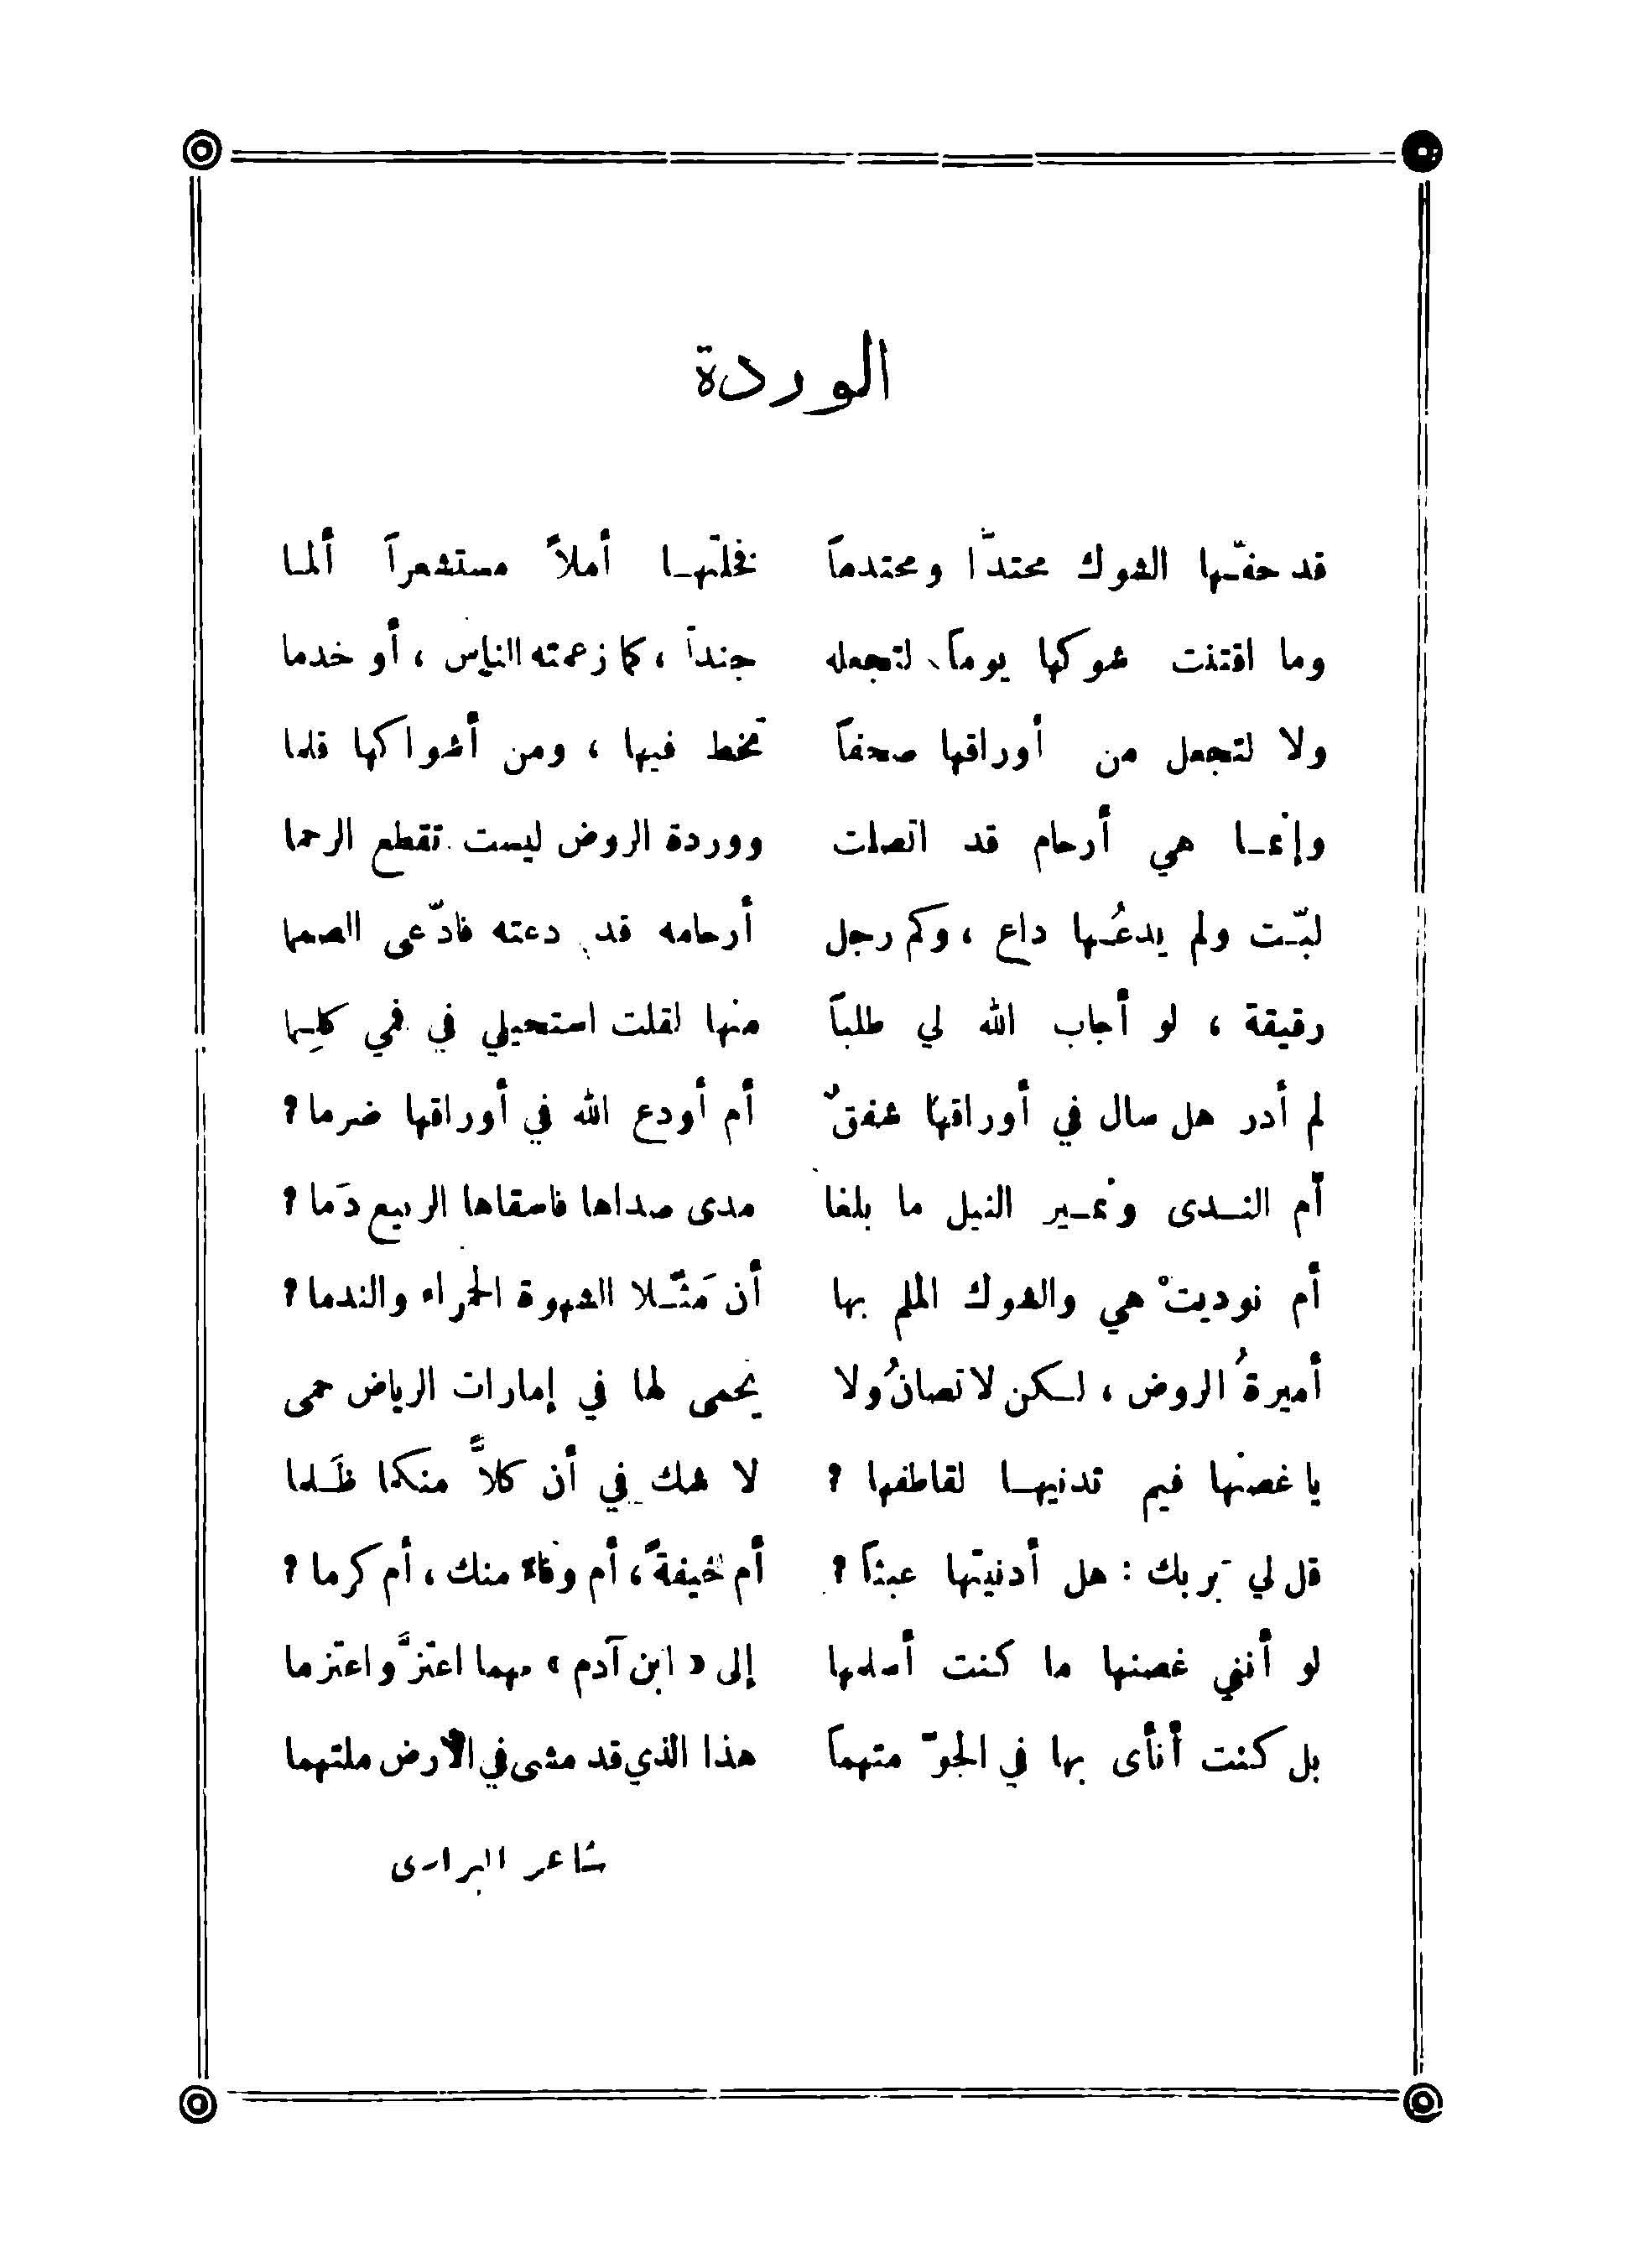 الوردة
قد حفّها الشوك محتدّا ومحتدماً فخلتها أملاً مستشعراً ألما
وما اقتنت شوكها يوماً لتجعله جنداً ، كما زعمته الناس ، أو خدما
ولا لتجعل من أوراقها صحفاً تخط فيها ، ومن أشواكها قلما
وإنما هي أرحام قد اتصلت ووردة الروض ليست تقطع الرحما
لبّت ولم يدعُها داع ، وكم رجل أرحامه قد دعته فادّعى الصمما
رقيقة ، لو أجاب الله لي طلباً منها لقلت استحيلي في فمي كلِما
لم أدر هل سال في أوراقها شفقٌ أم أودع الله في أوراقها ضرما ؟
أم الندى ونمير النيل ما بلغا مدى صداها فاسقاها الربيع دَما ؟
أم نوديتْ هي والشوك الملم بها أن مَثّلا الشهوة الحمراء والندما ؟
أميرةُ الروض ، لكن لا تصانُ ولا يحمى لها في إمارات الرياض حمى
يا غصنها فيم تدنيها لقاطفها ؟ لا شك في أن كلاًّ منكما ظَلما
قل لي بربك : هل أدنيتها عبثاً ؟ أم خيفةً ، أم وفاءً منك ، أم كرما ؟
لو أنني غصنها ما كنت أسلمها إلى « ابن آدم » مهما اعتزَّ واعتزما
بل كنت أنأى بها في الجوّ متهماً هذا الذي قد مشى في الأرض ملتهما
شاعر البرارى